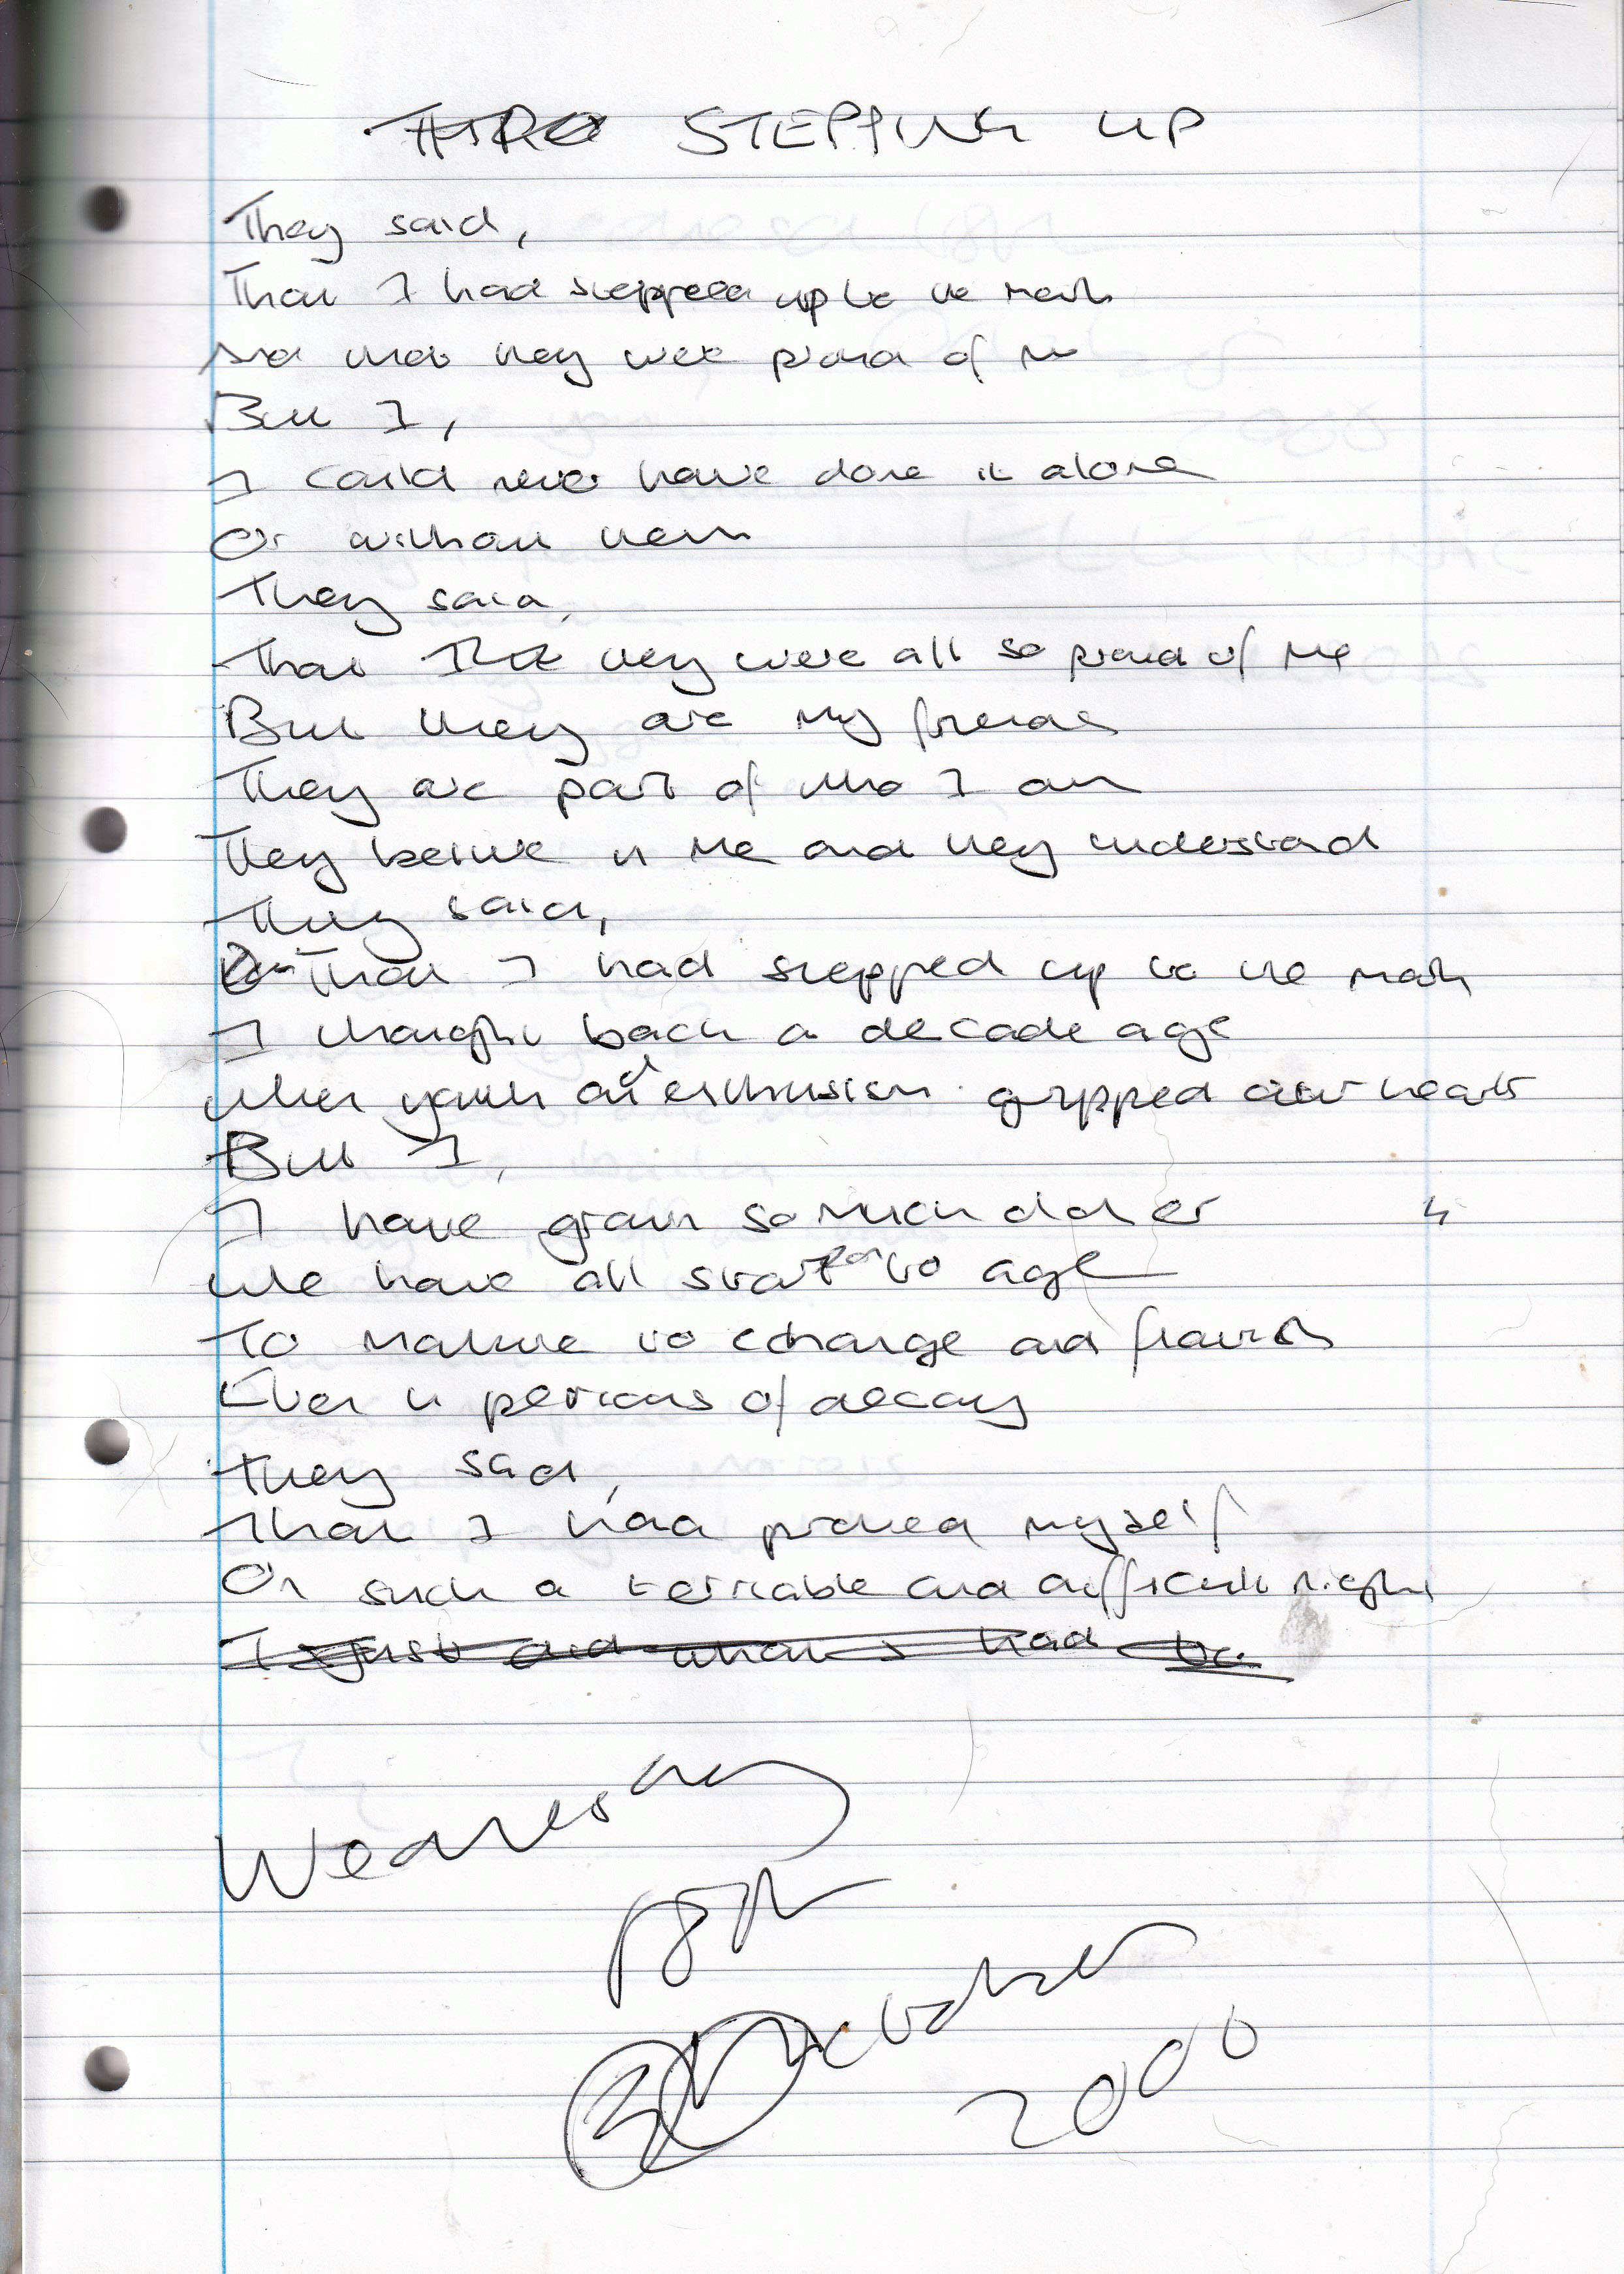 STEPPING UP
They said,
That I had stepped up to the mark
And that they were proud of me
But I,
I could never have done it alone
Or without them
They said,
That they were all so proud of me
But they are my friends
They are part of who I am
They believe in me and they understand
They said,
That I had stepped up to the mark
I thought back a decade ago
When youth and enthusism gripped our hearts
But I,
I have grown so much older
We have all started to age
To mature to change and flourish
Even in periods of decay
They said,
That I had proved myself
On such a terricable and difficult night
I just did what I had to
Wednesday
October
2000